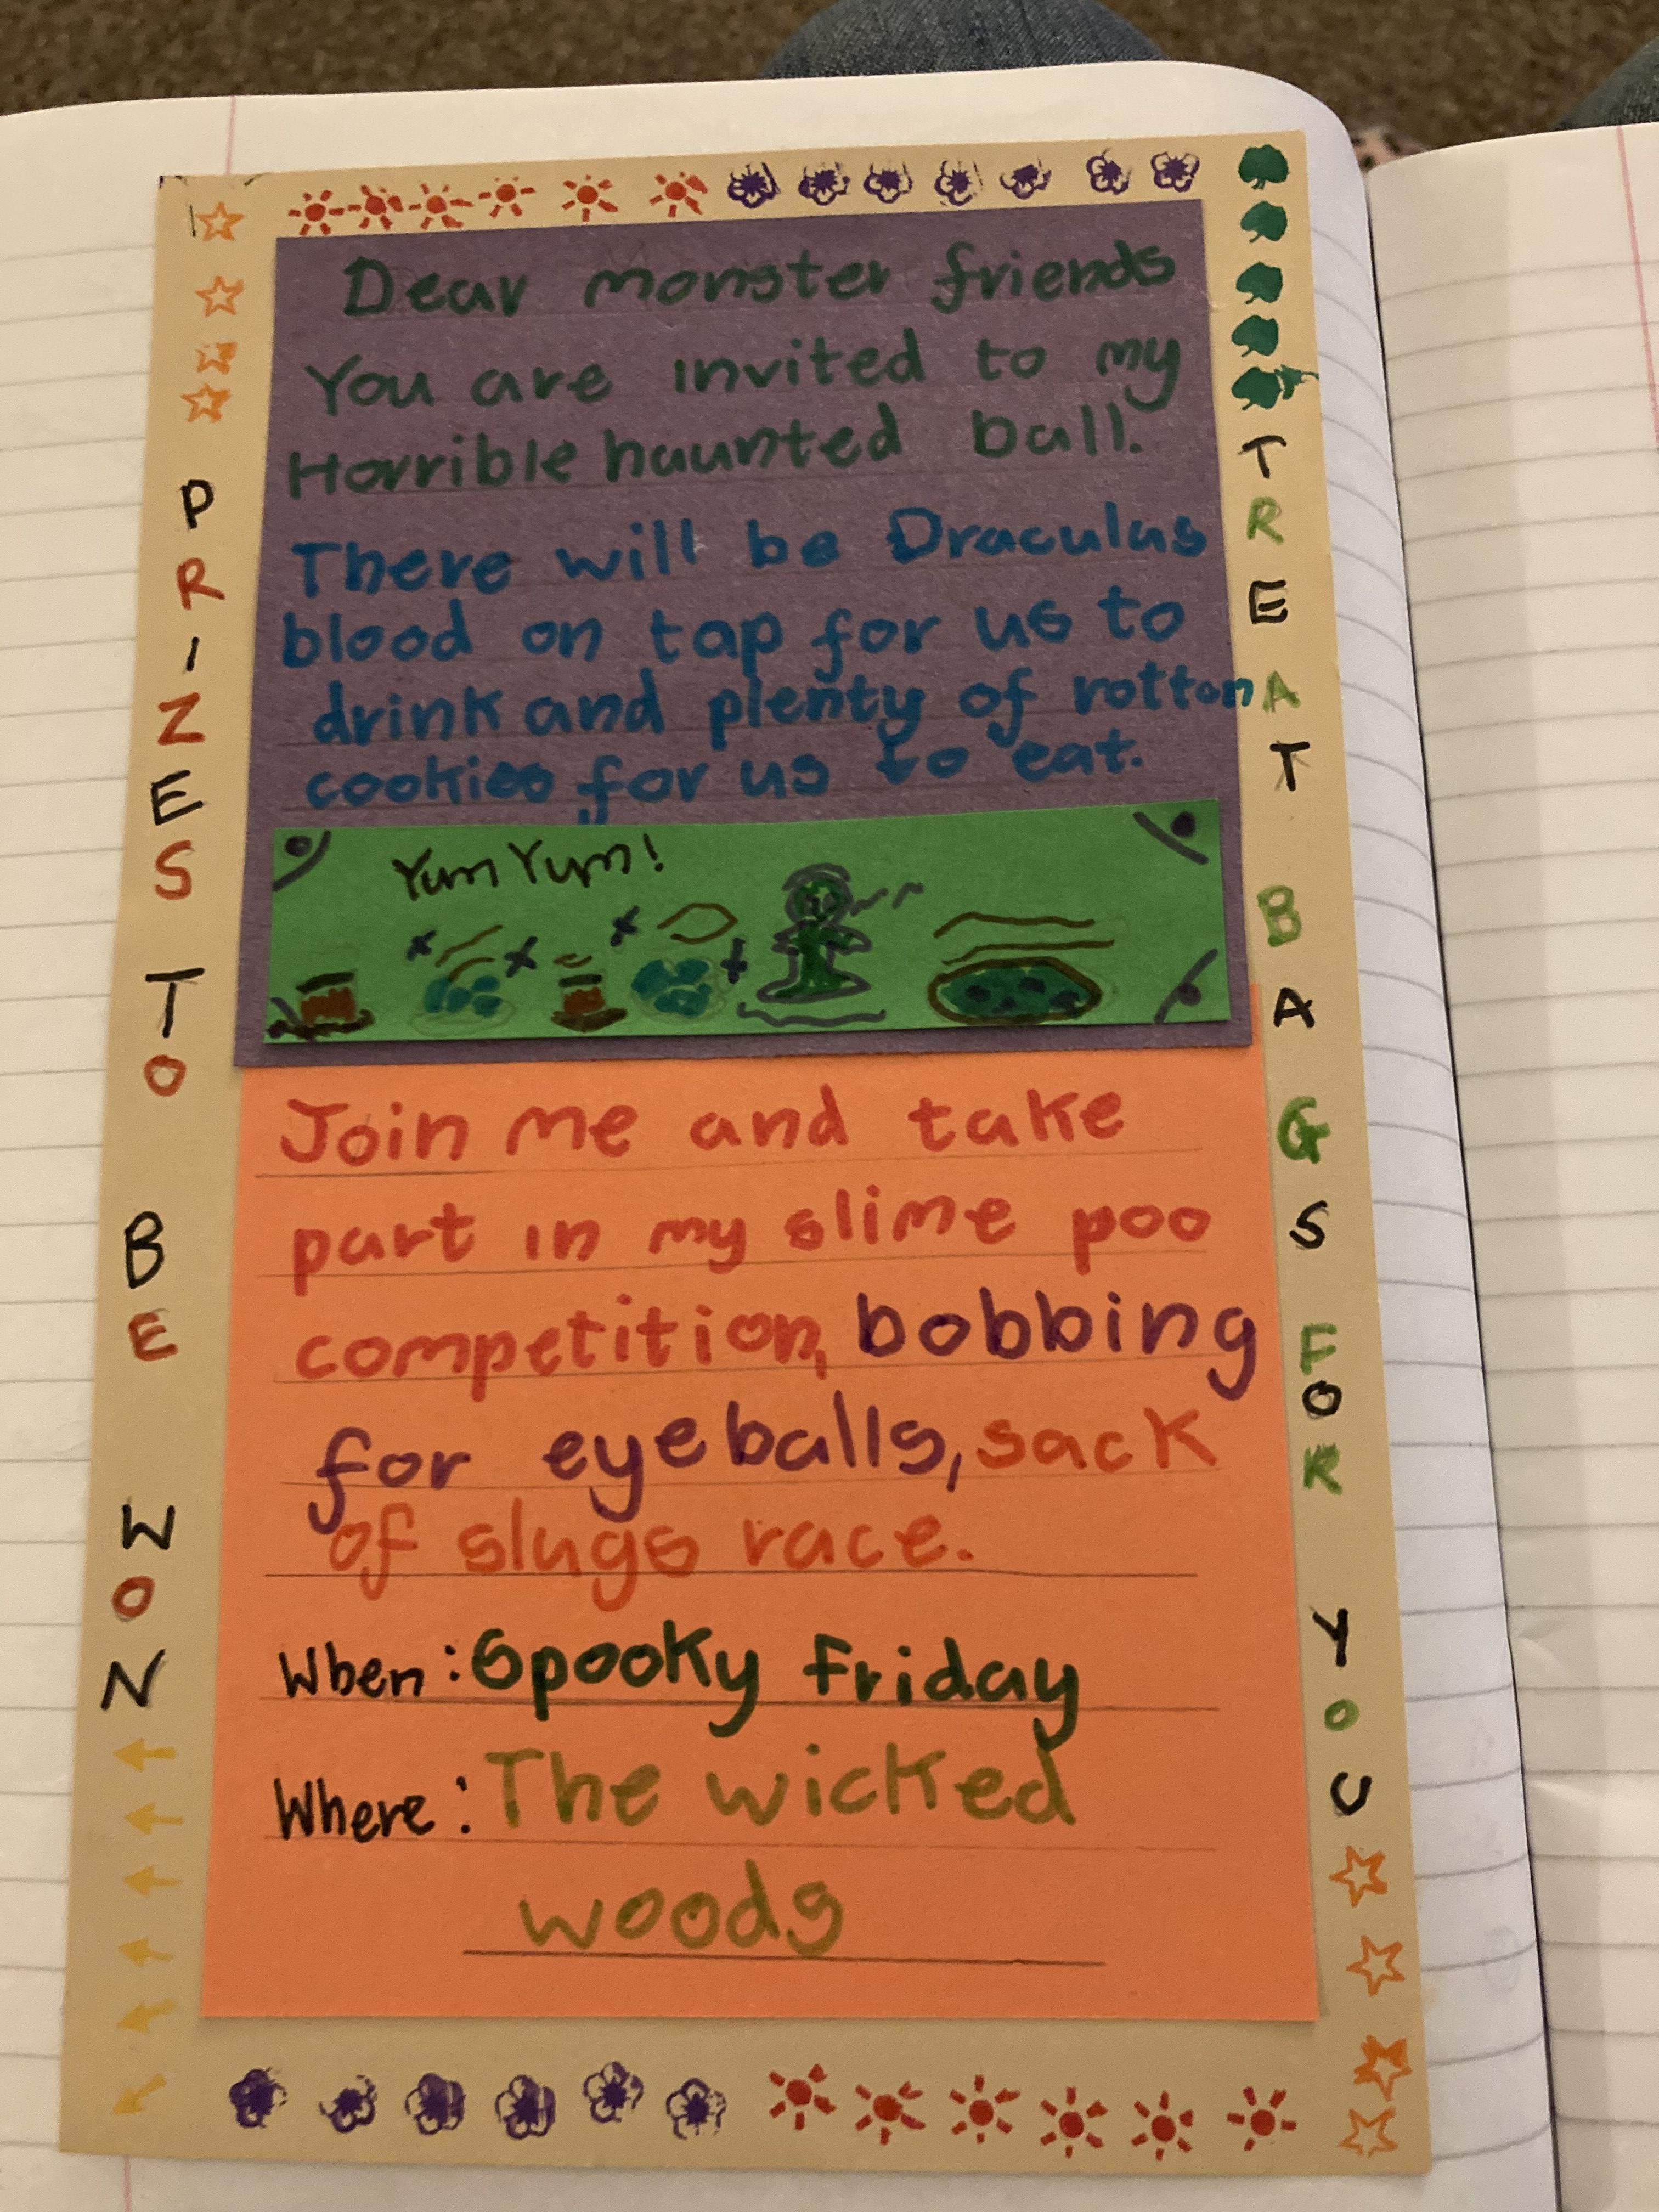 Dear monster friends
You are invited to my
Horrible haunted ball.
There will be Draculas
blood on tap for us to
drink and plenty of rotton
cookies for us to eat.
Yum Yum!
Join me and take
part in my slime poo
competition, bobbing
for eyeballs, sack
of slugs race.
When: Spooky friday
Where: The wicked
woods
PRIZES TO BE WON
TREAT BAGS FOR YOU